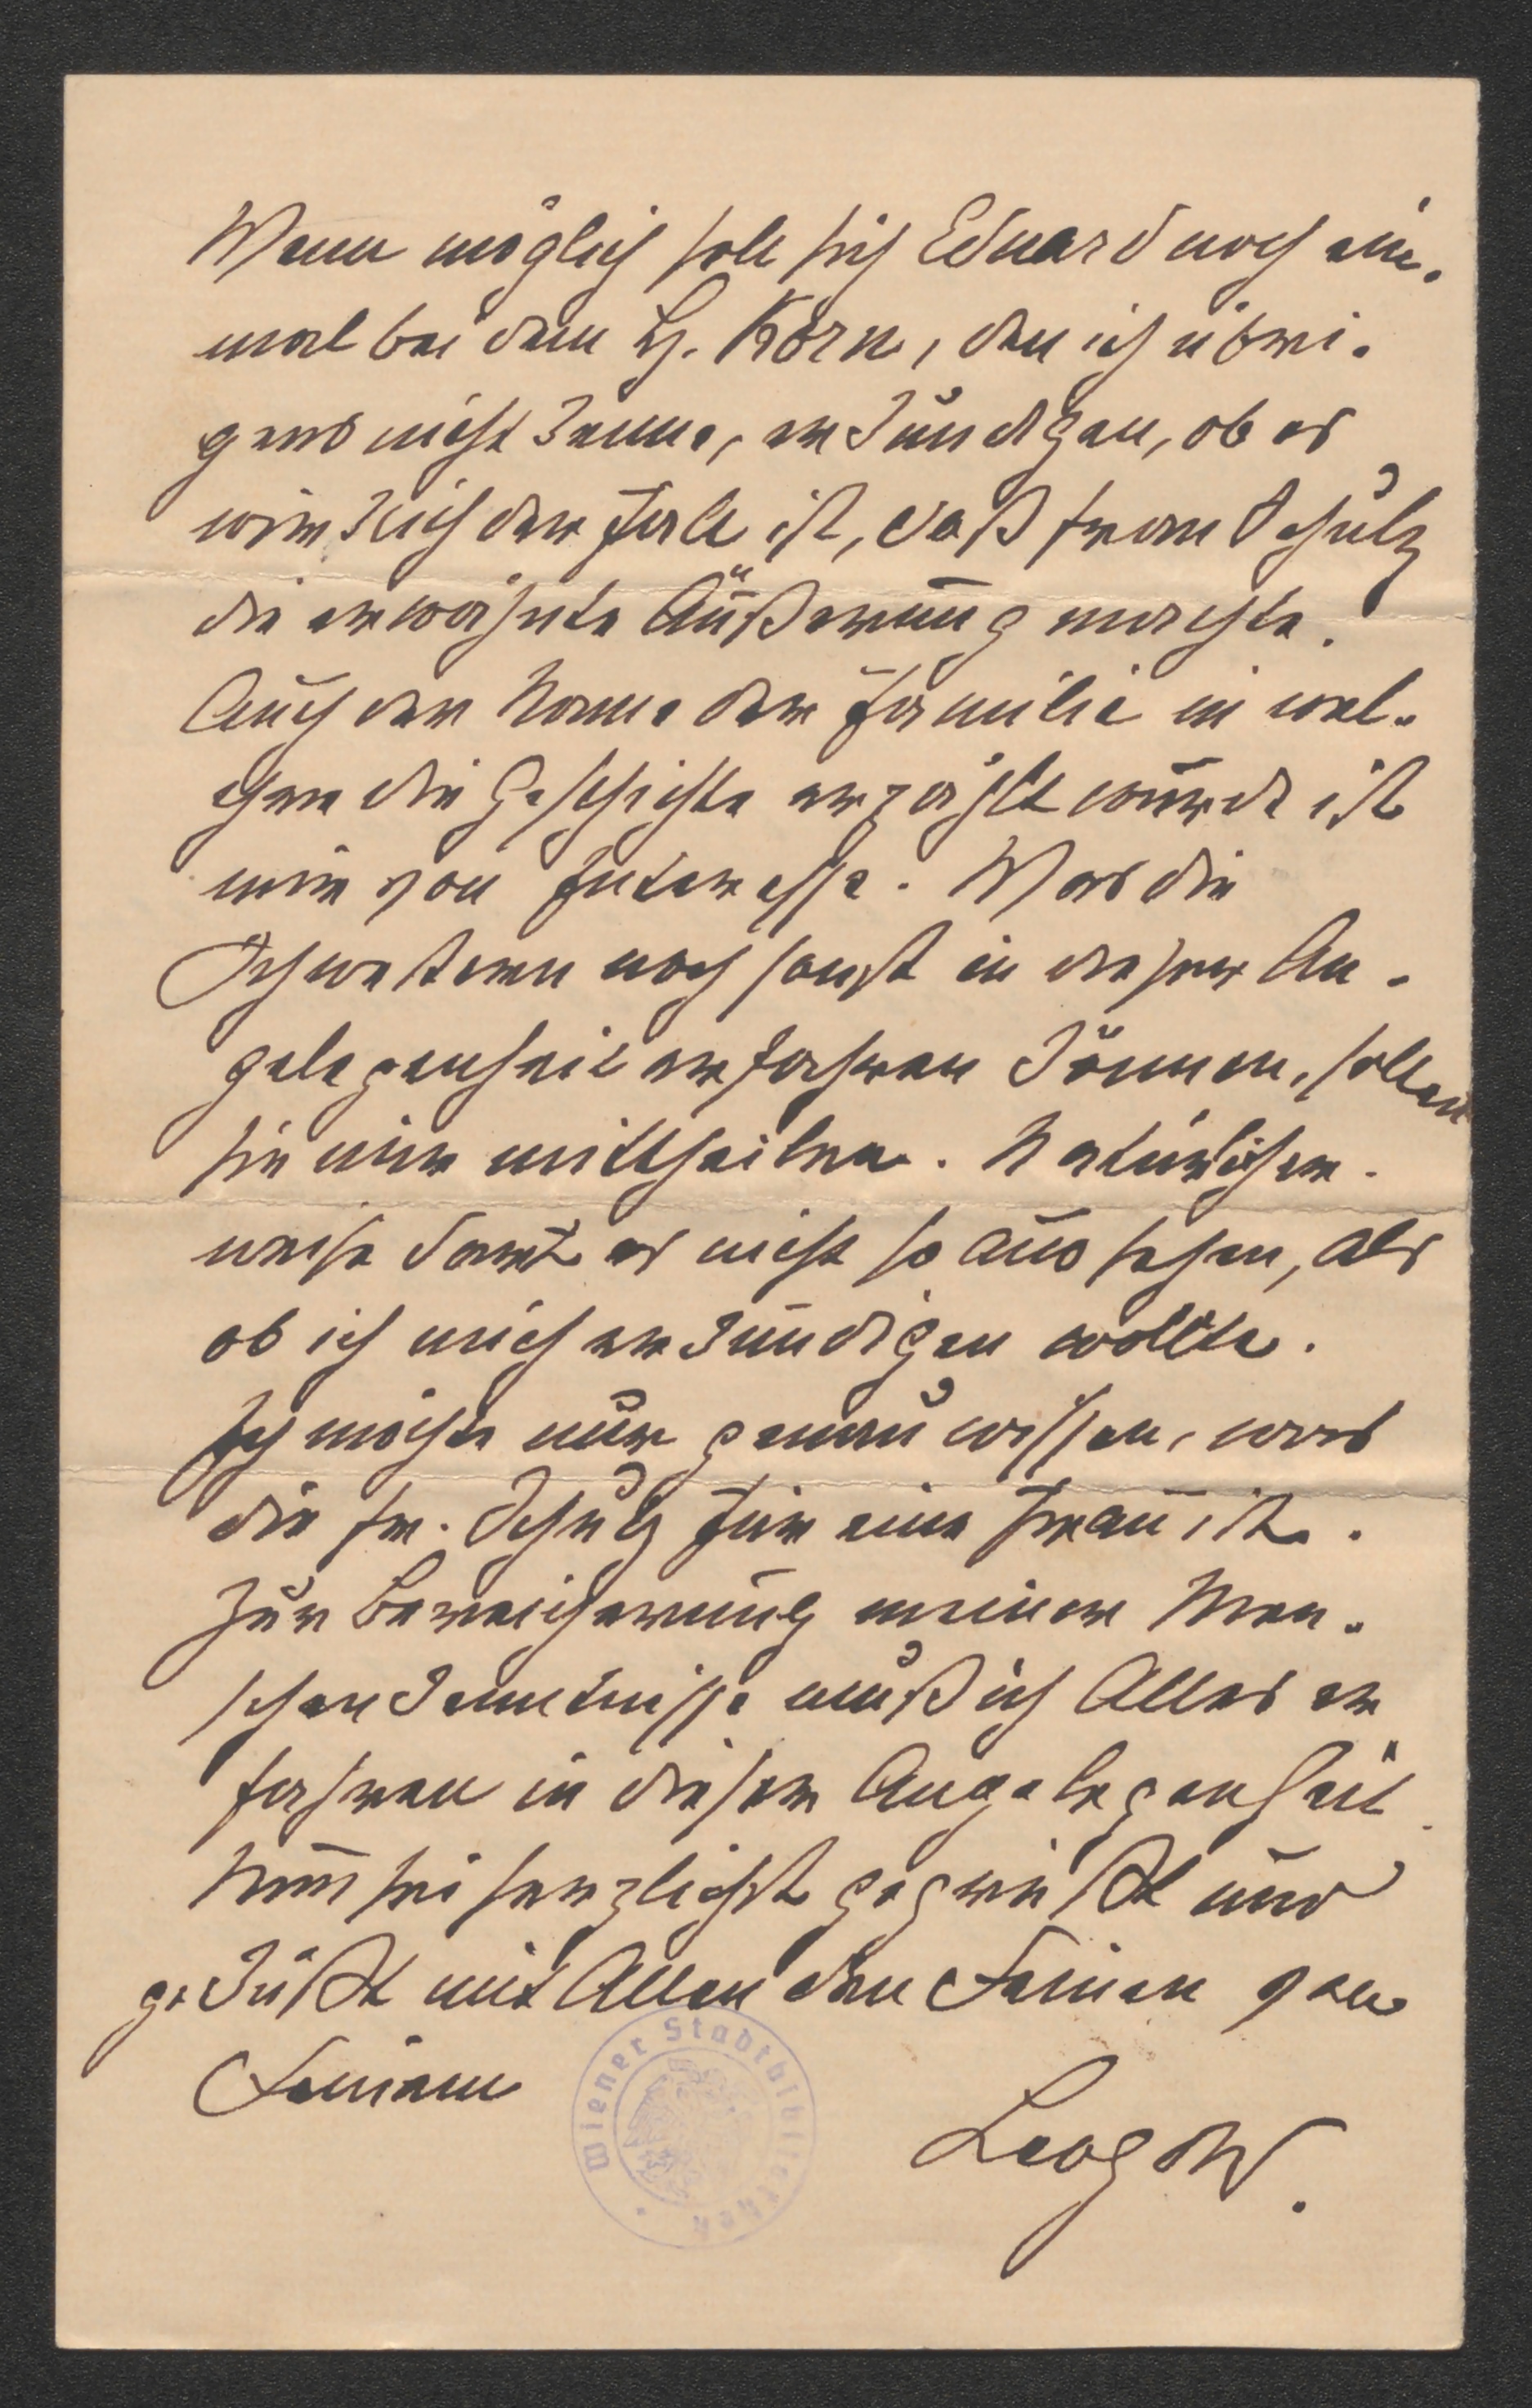 Wenn möglich soll sich Eduard noch ein-
mal bei dem H. Korn, den ich übri-
gens nicht kenne, erkundigen, ob es
wirklich der Fall ist, daß Frau Schulz
die erwähnte Äußerung machte.
Auch der Name der Familie in wel-
cher die Geschichte erzählt wurde ist
mir von Interesse. Was die
Schwestern noch sonst in dieser An-
gelegenheit erfahren können, sollen
sie mir mittheilen. Natürlicher-
weise darf es nicht so aussehen, als
ob ich mich erkundigen wollte.
Ich möchte nur genau wissen, was
die Fr. Schulz für eine Frau ist.
Zur Bereicherung meiner Men-
schenkenntnisse muß ich Alles er
fahren in dieser Angelegenheit.
Nun sei herzlichst gegrüßt und
geküßt mit Allen den Deinen von
Deinem
Leop W.
Wiener Stadtbibliothek